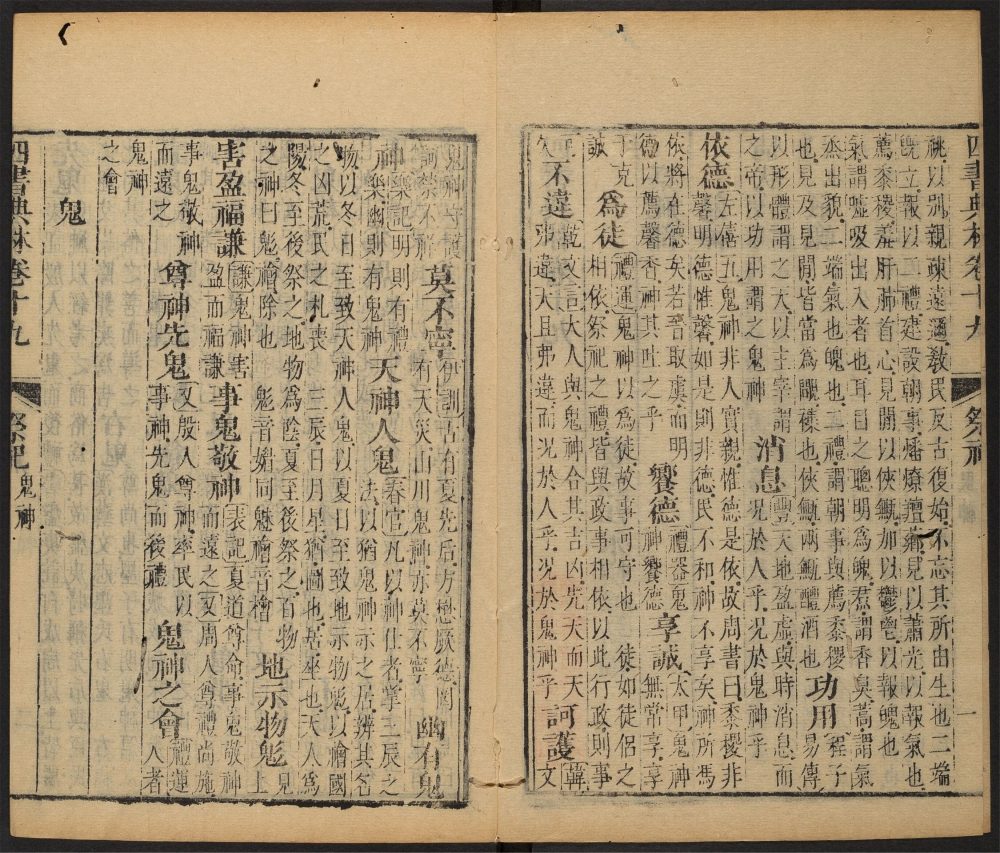 四書典林卷十九 祭神 一
祧以別親疎遠邇教民反古復始不忘其所由生也二端
旣立報以二禮建設朝事燔燎羶薌見以蕭光以報氣也
薦黍稷羞肝肺首心見間以俠甒加以鬱鬯以報魄也
氣謂噓吸出入者也耳目之聰明爲魄焄謂香臭蒿謂氣
烝出貌二端氣也魄也二禮謂朝事與薦黍稷
也見及見間皆當爲覸俠甒兩甒醴酒也 功用 易傳程子
以形體謂之天以主宰謂之帝以功用謂之鬼神 消息 豐天地盈虛與時消息而況於人乎況於鬼神乎
依德 左僖五鬼神非人實親惟德是依故周書曰黍稷非
馨明德惟馨如是則非德民不和神不享矣神所馮
依將在德矣若晉取虞而明
德以薦馨香神其吐之乎 饗德 禮器鬼神饗德 享誠 太甲鬼神無常享享
于克誠 爲徒 禮運鬼神以爲徒故事可守也 徒如徒侶之
相依祭祀之禮皆與政事相依以此行政則事
不違 乾文言大人與鬼神合其吉凶先天而天
弗違天且弗違而況於人乎況於鬼神乎 訶護 韓文
鬼神守護訶禁不祥 莫不寧 伊訓古有夏先后方懋厥德罔
有天災山川鬼神亦莫不寧 幽有鬼
神 樂記明則有禮樂幽則有鬼神 天神人鬼 春官凡以神仕者掌三辰之
法以猶鬼神示之居辨其名
物以冬日至致天神人鬼以夏日至致地示物鬽以禬國
之凶荒民之札喪 三辰日月星猶圖也居坐也天人爲
陽冬至後祭之地物爲陰夏至後祭之百物
之神曰鬽禬除也 鬽音媚同魅禬音檜 地示物鬽 見上
害盈福謙 謙鬼神害盈而福謙 事鬼敬神 表記夏道尊命事鬼敬神
而遠之又周人尊禮尚施
事鬼敬神而遠之 尊神先鬼 又殷人尊神率民以事神先鬼而後禮 鬼神之會 禮運人者
鬼神之會
鬼
四書典林卷十九 祭祀 鬼神